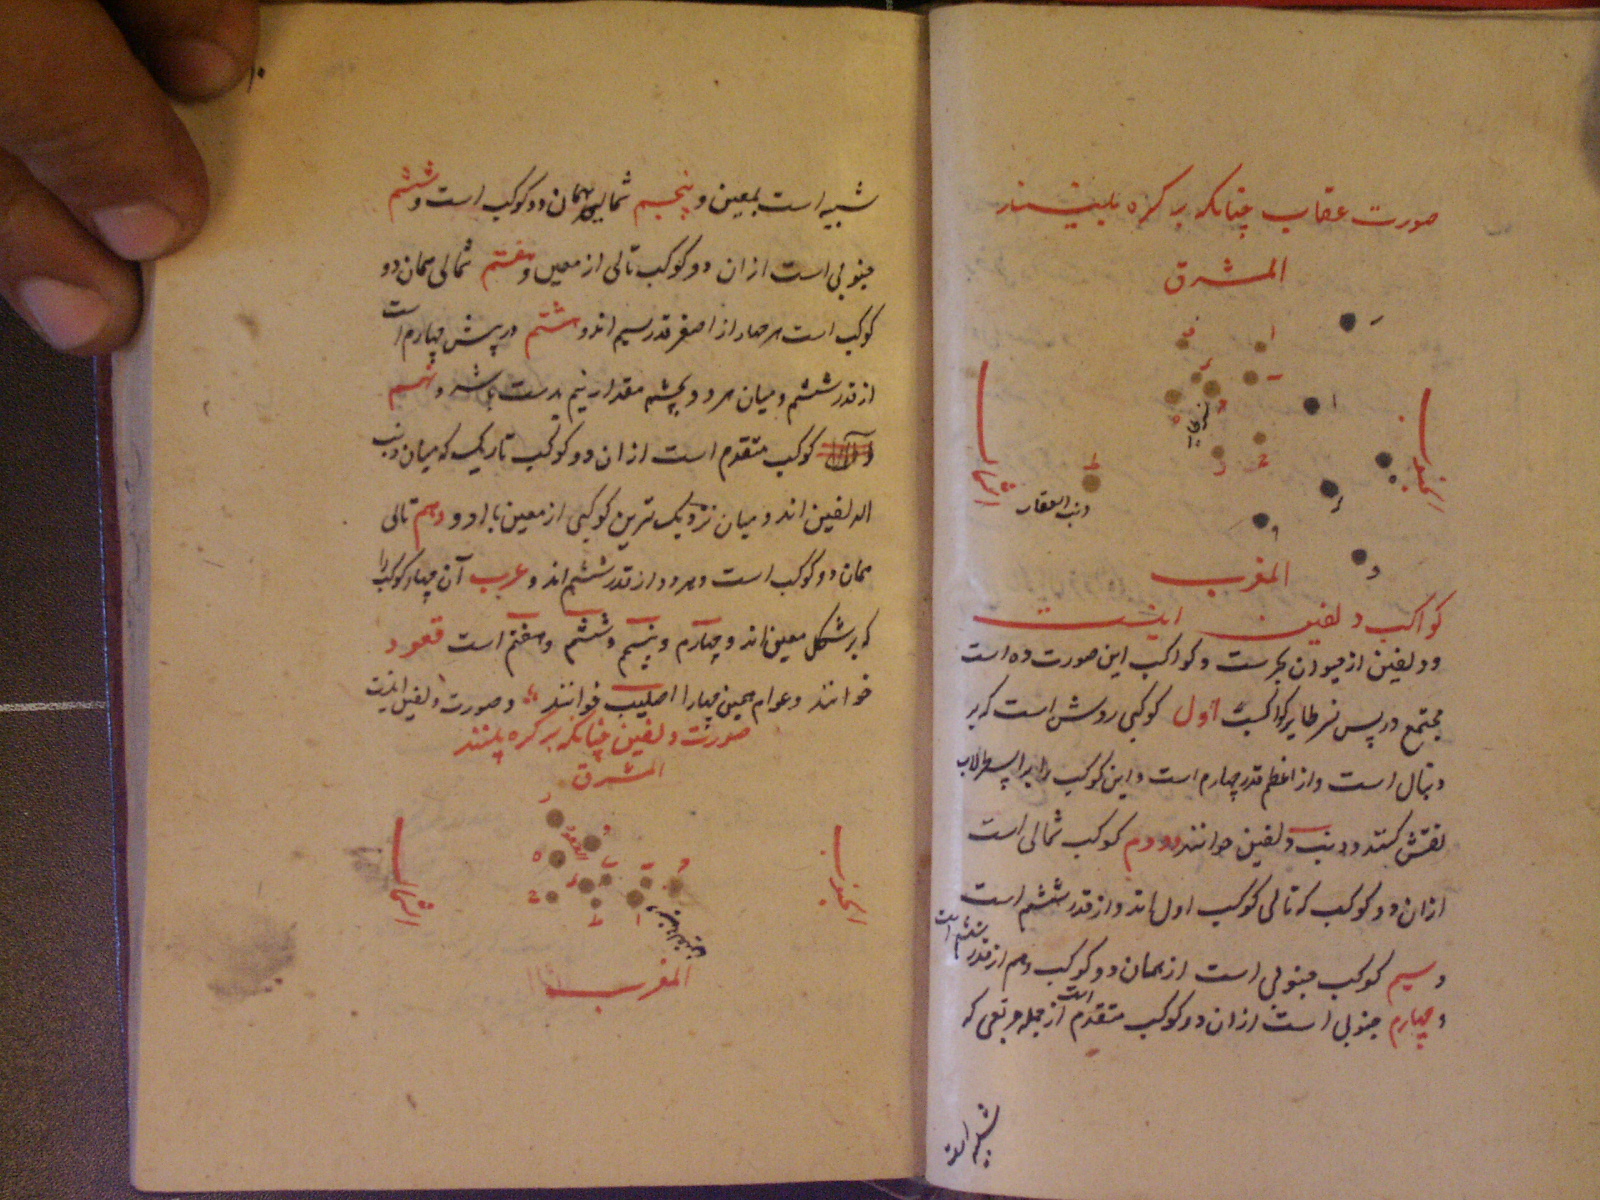 صورت عقاب چنانکه بر کره بینند
المشرق
الجنوب
الشمال
نسر طایر
ذنب العقاب
المغرب
کواکب دلفین اینست
و دلفین از حیوان بحرست و کواکب این صورت ده است
مجتمع در پس نسر طایر کواکب اول کوکبی روشن است که بر
دنبال است و از اعظم قدر چهارم است و این کوکب را بر اسطرلاب
نقش کنند و ذنب دلفین خوانند و دوم کوکب شمالی است
ازان دو کوکب که تالی کوکب اول اند و از قدر ششم است
و سیم کوکب جنوبی است از همان دو کوکب و هم از قدر ششم است
و چهارم جنوبی است ازان دو کوکب متقدم است از جمله مربعی که
شبیه است
شبیه است بمعین و پنجم شمالی همان دو کوکب است و ششم
جنوبی است ازان دو کوکب تالی از معین و هفتم شمالی همان دو
کوکب است هر چهار از اصغر قدر سیم اند و هشتم در پیش چهارم است
از قدر ششم و میان هر دو بچشم مقدار نیم بدست باشد و نهم
کوکب متقدم است ازان دو کوکب تاریک که میان ذنب
الدلفین اند و میان نزدیک ترین کوکبی از معین با او و دهم تالی
همان دو کوکب است و هر دو از قدر ششم اند و عرب آن چهار کوکب را
که بر شکل معین اند و چهارم و پنجم و ششم و هفتم است قعود
خوانند و عوام همین چهار را صلیب خوانند و صورت دلفین اینست
صورت دلفین چنانکه بر کره بینند
المشرق
الجنوب
الشمال
القعود
ذنب الدلفین
المغرب